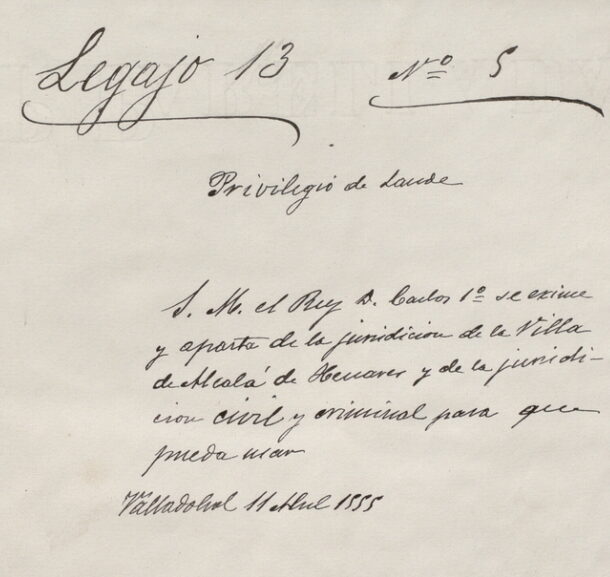 Legajo 13 Nº 5
Privilegio de Laude
S. M. el Rey D. Carlos 1º se exime
y aparta de la juridicion de la Villa
de Alcalá de Henares y de la juridi-
cion civil y criminal para que
pueda usar
Valladolid 11 Abril 1555